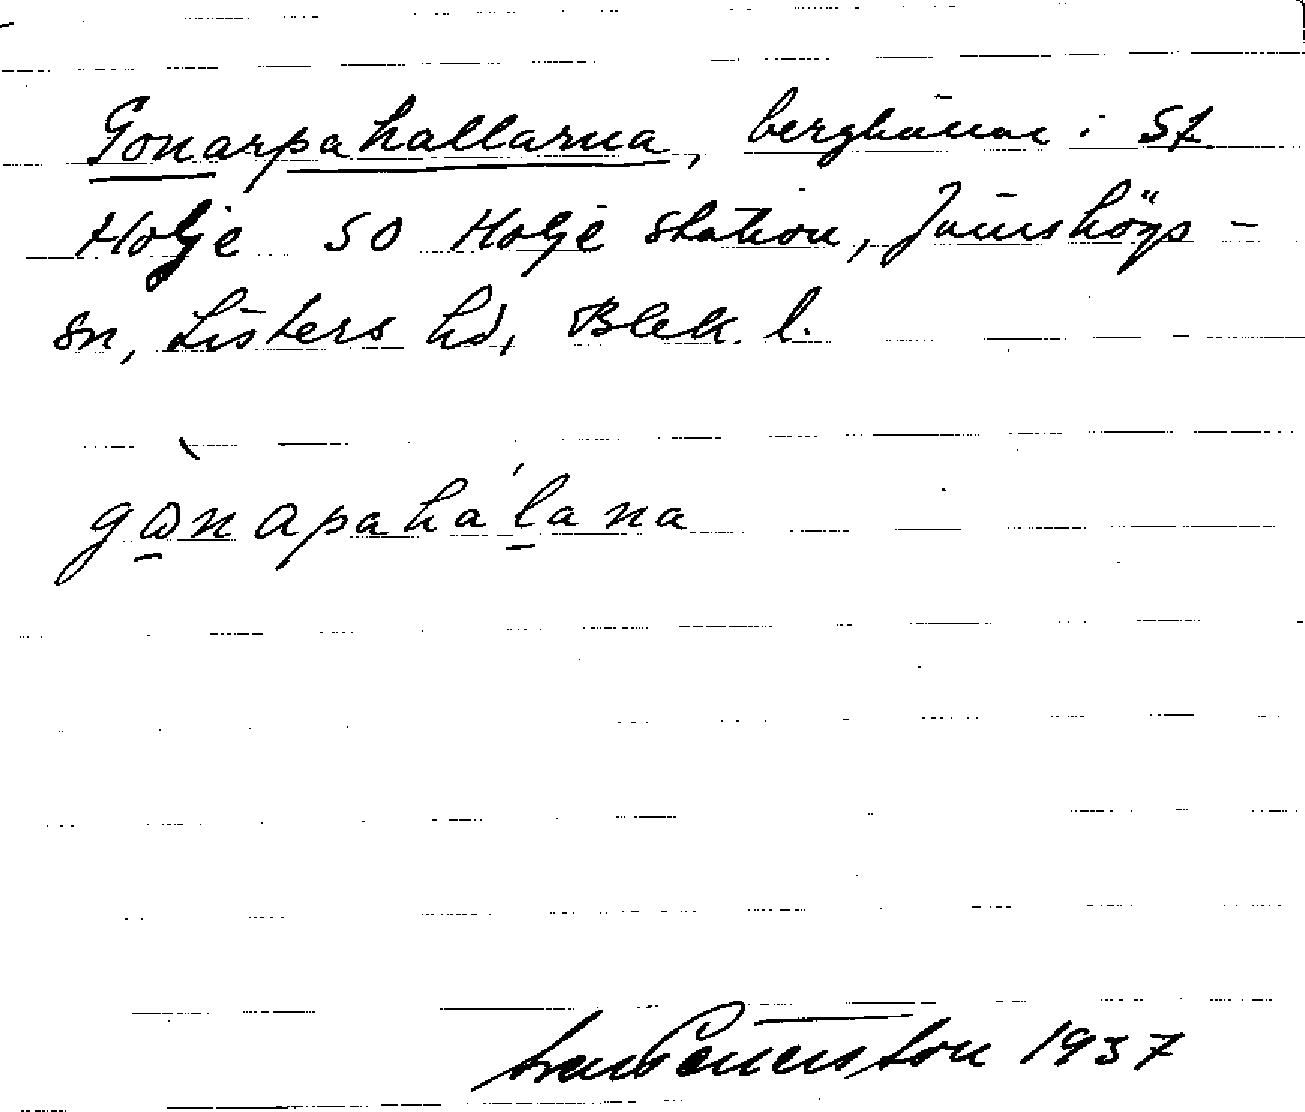 Gonarpahallarna, berghällar i St.
Holje SO Holje station, Jämshögs-
sn, Listers hd, Blek. l.
gònapaháḷana
1937